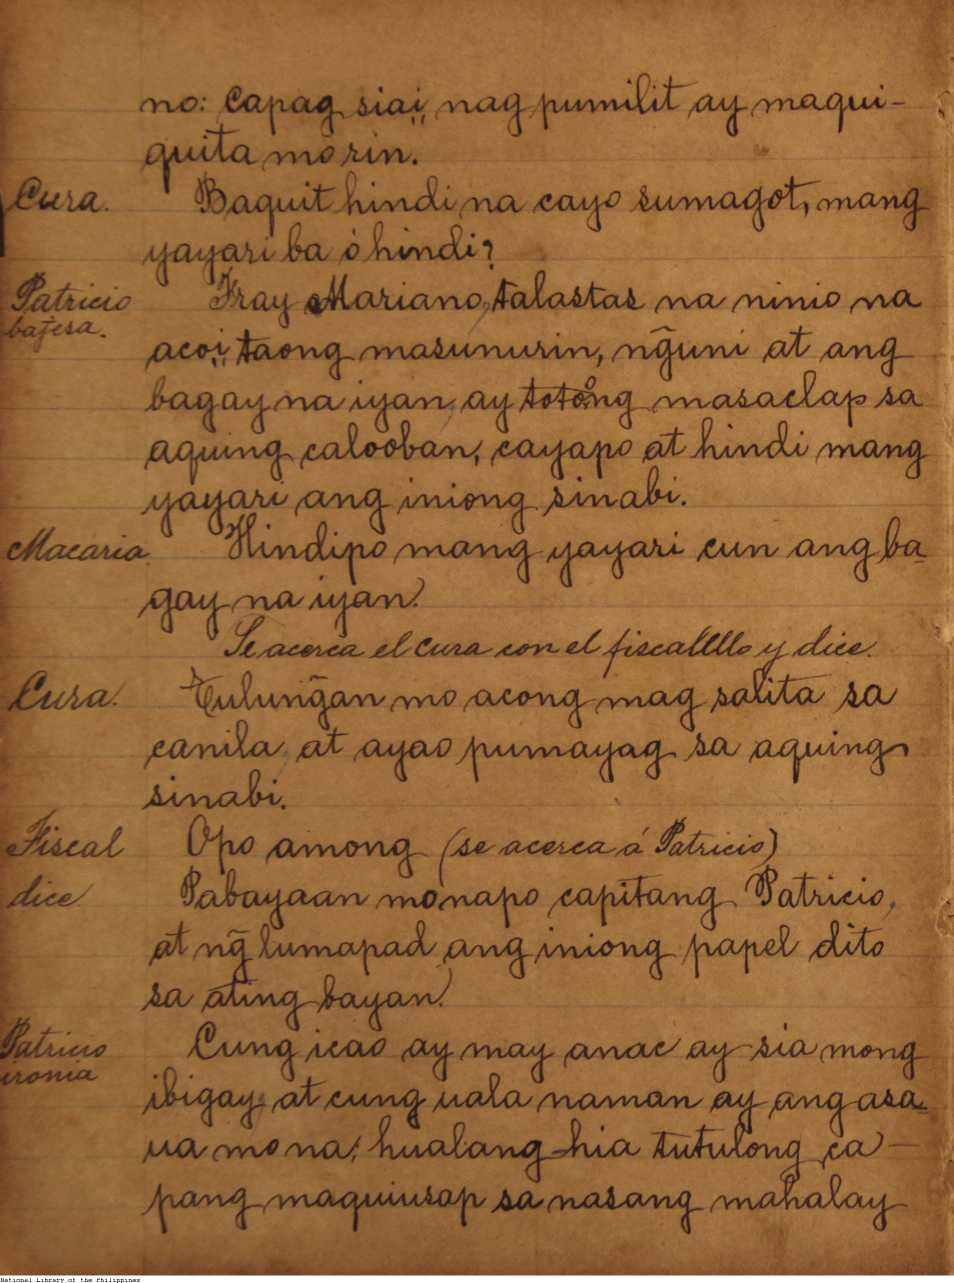 no: capag siai, nag pumilit ay maqui-
quita mo rin.
Cura. Baquit hindi na cayo sumagot, mang
yayari ba ó hindi?
Patricio Fray Mariano, talastas na ninio na
bajesa. acoi, taong masunurin, ng̃uni at ang
bagay na iyan, ay totoong masaclap sa
aquing calooban, cayapo at hindi mang
yayari ang iniong sinabi.
Macaria. Hindipo mang yayari cun ang ba-
gay na iyan.
Se acerca el cura con el fiscalillo y dice.
Cura. Tulung̃an mo acong mag salita sa
canila, at ayao pumayag sa aquing
sinabi.
Fiscal Opo among (se acerca á Patricio)
dice Pabayaan monapo capitang Patricio,
at ng̃ lumapad ang iniong papel dito
sa ating bayan.
Patricio Cung icao ay may anac ay sia mong
ironia ibigay, at cung uala naman ay ang asa-
ua mo na; hualang hia tutulong ca-
pang maquiusap sa nasang mahalay
National Library of the Philippines